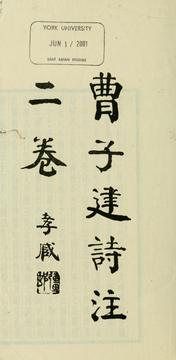 YORK UNIVERSITY
JUN 1 / 2001
EAST ASIAN STUDIES
曹子建詩注
二卷
孝臧